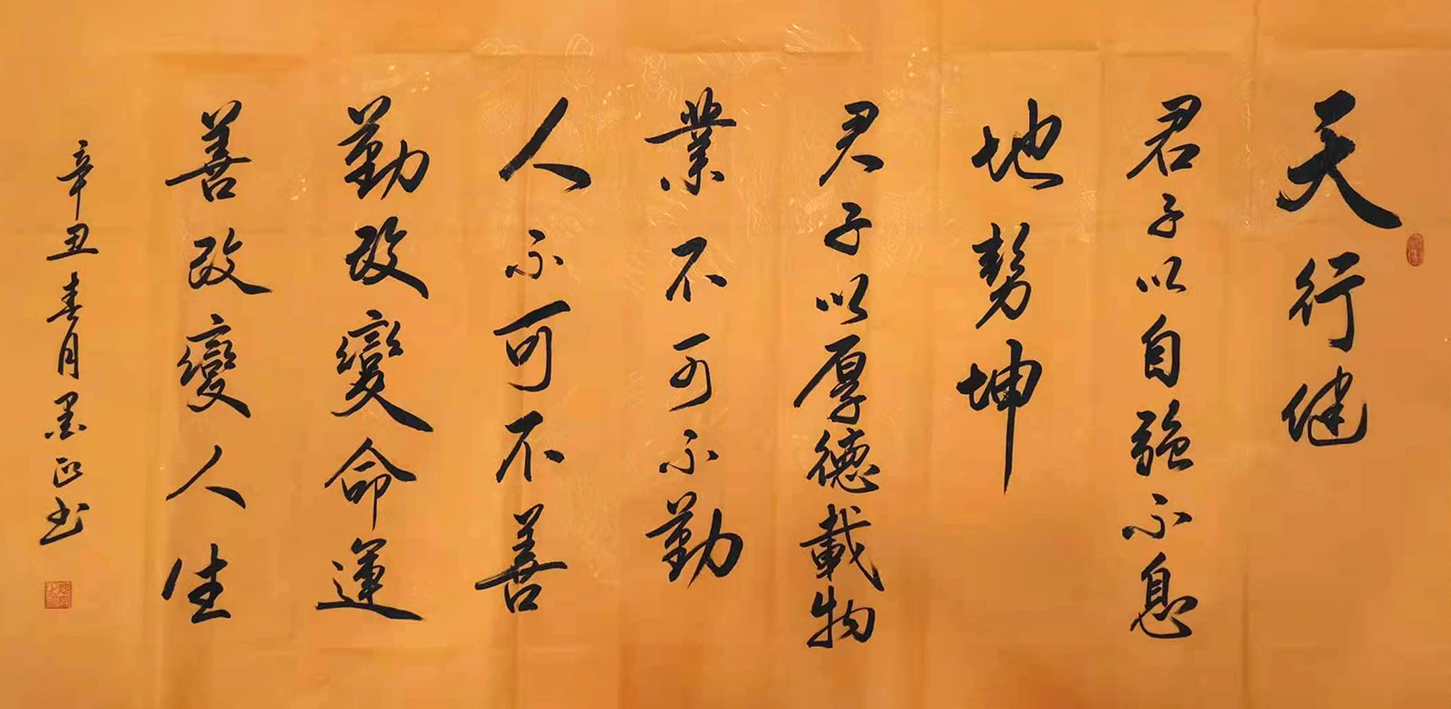 天行健
君子以自強不息
地勢坤
君子以厚德載物
業不可不勤
人不可不善
勤改變命運
善改變人生
辛丑春月墨正书